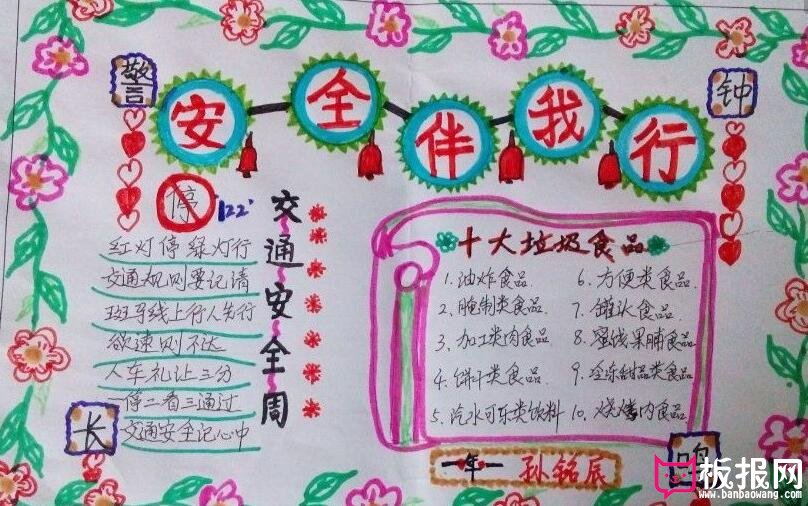 警
钟
安全伴我行
停
122
交通安全周
红灯停绿灯行
交通规则要记清
班马线上行人先行
欲速则不达
人车礼让三分
一停二看三通过
交通安全记心中
十大垃圾食品
1. 油炸食品.
2. 腌制类食品.
3. 加工类肉食品
4. 饼干类食品.
5. 汽水可乐类饮料
6. 方便类食品.
7. 罐头食品.
8. 蜜饯果脯食品
9. 冷冻甜品类食品.
10. 烧烤肉食品.
长
鸣
一年一
孙铭辰
板报网
www.banbaowang.com